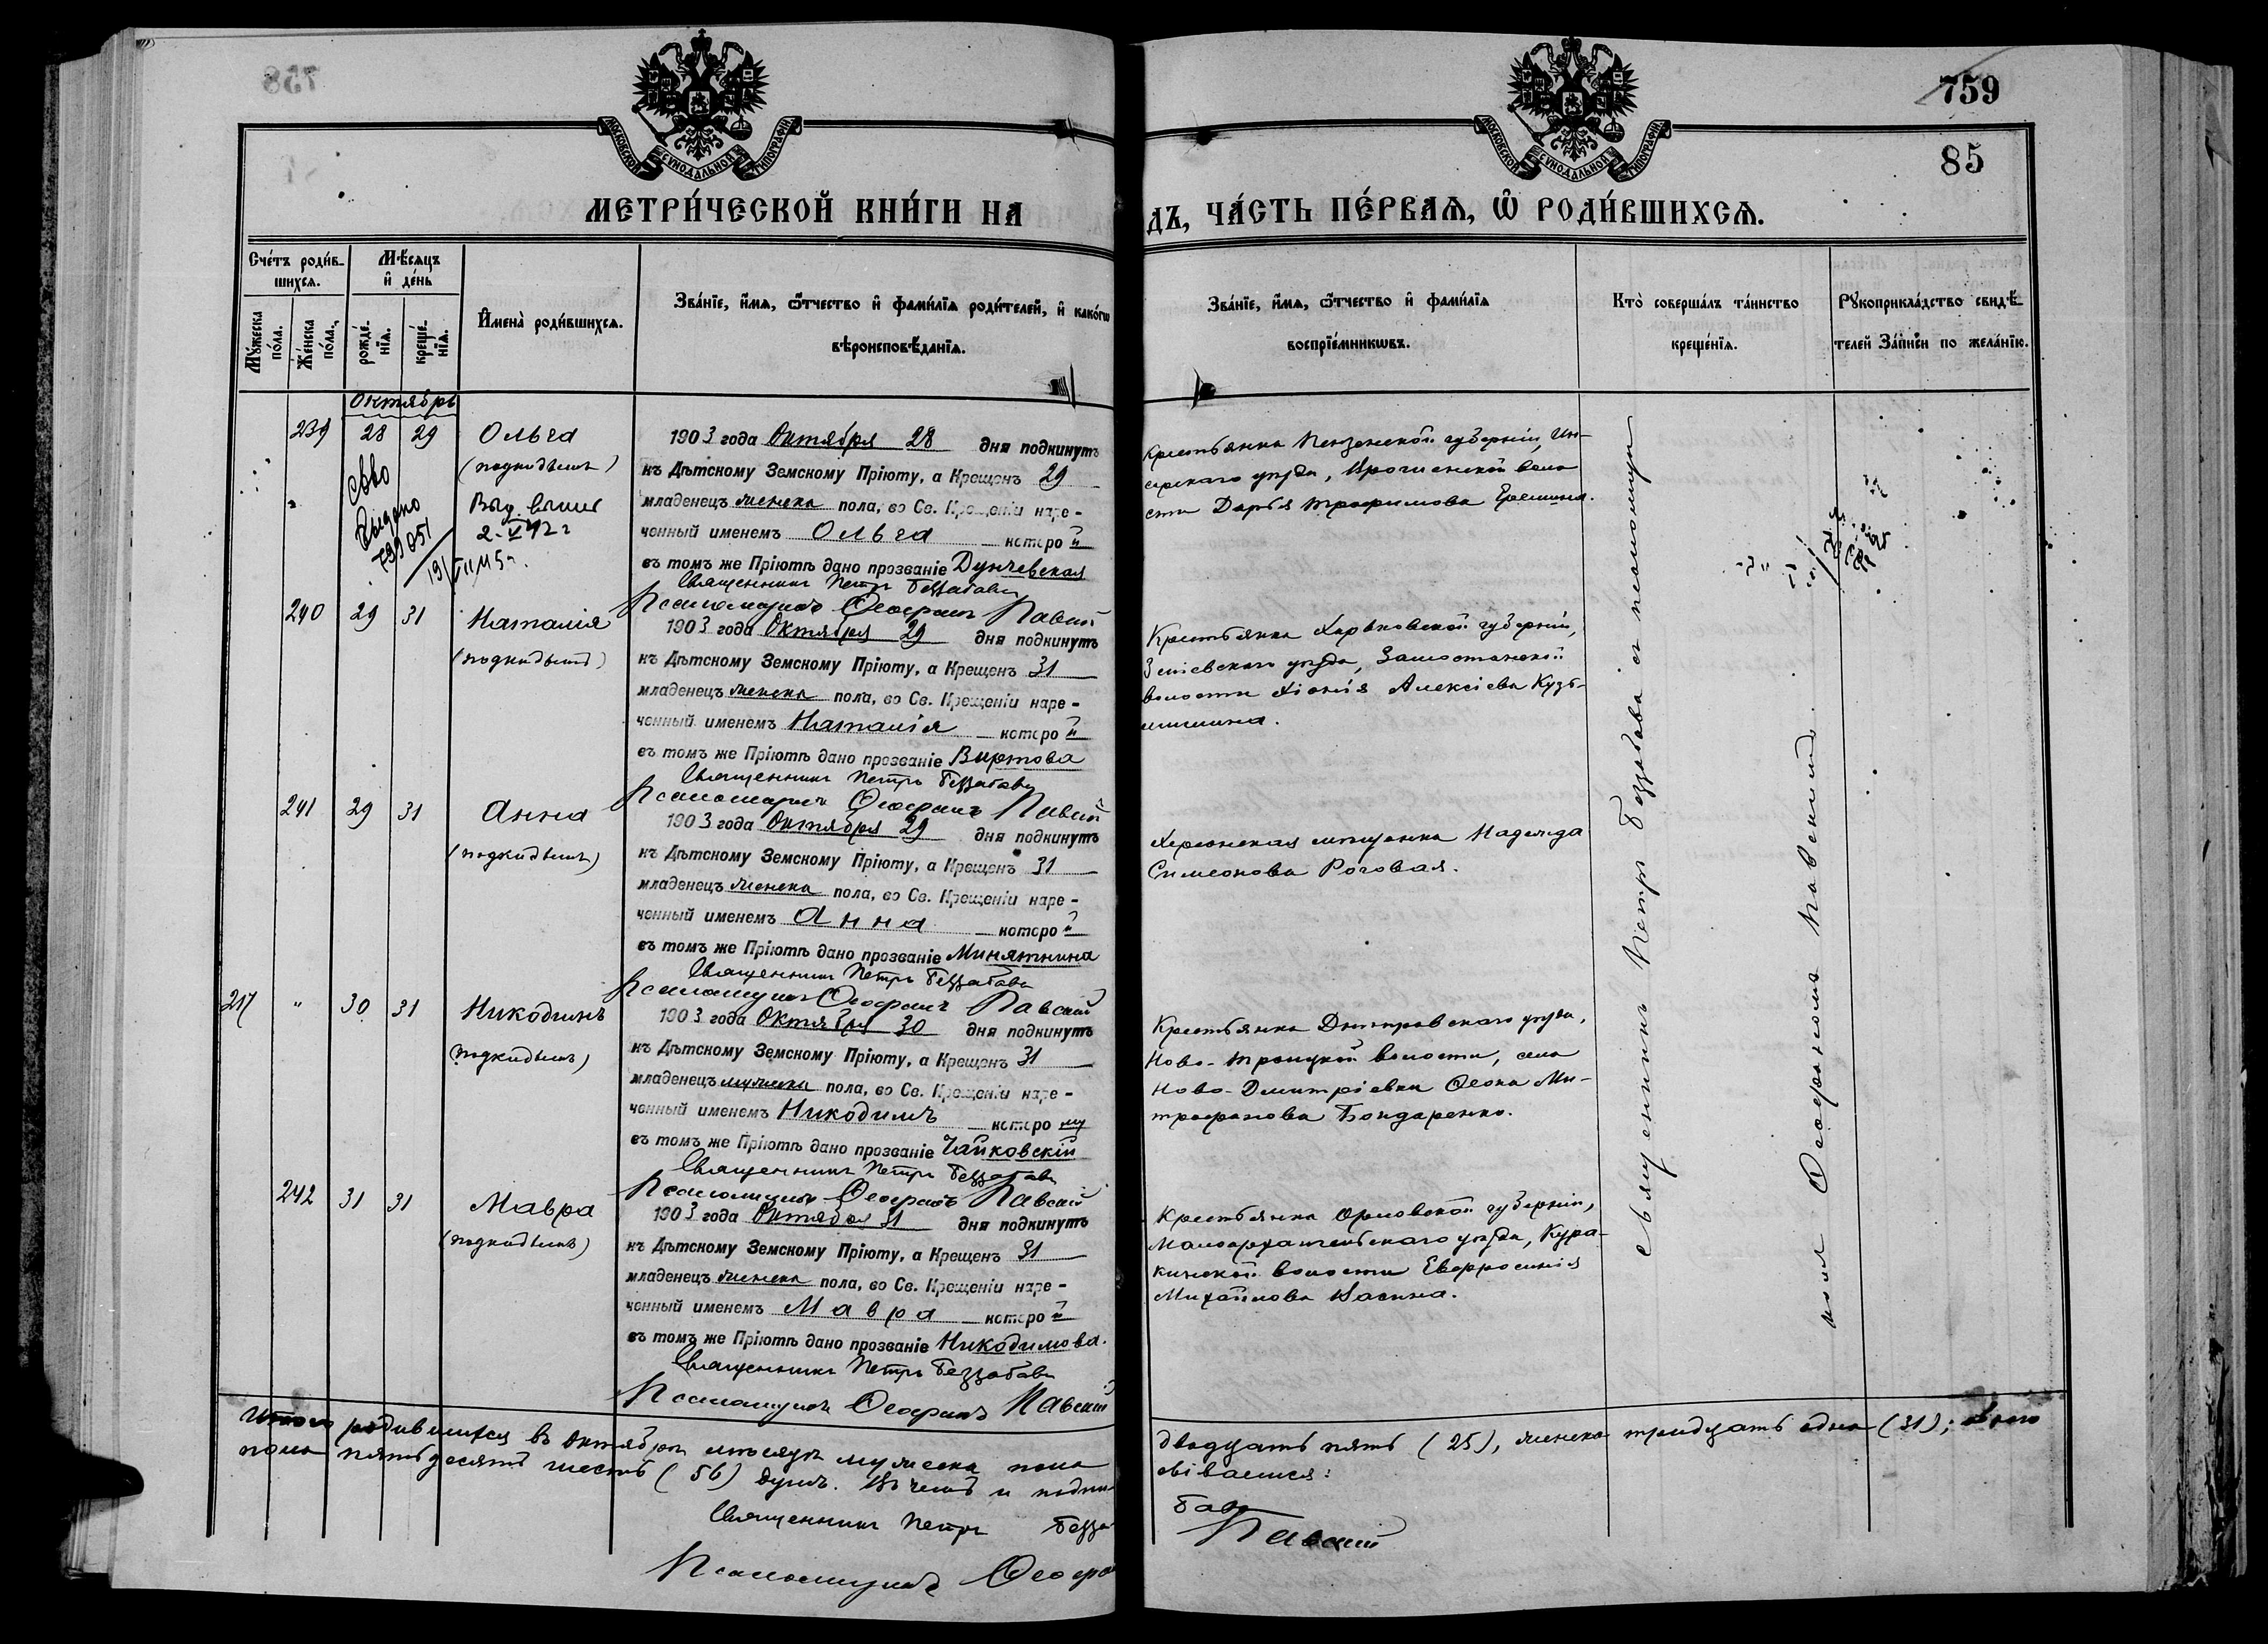 759
85
МОСКОВСКОЙ СѴНОДАЛЬНОЙ ТИПОГРАФІИ
МОСКОВСКОЙ СѴНОДАЛЬНОЙ ТИПОГРАФІИ
МЕТРИ́ЧЕСКОЙ КНИ́ГИ НА
ДЪ, ЧА́СТЬ ПЕ́РВАѦ, Ѡ҆ РОДИ́ВШИХСѦ.
Сче́тъ роди́в-
шихсѧ.
Мꙋ́жеска
по́ла.
Же́нска
по́ла.
Мѣ́сѧцъ
и҆ де́нь
рожде́-
нїѧ.
креще́-
нїѧ.
И҆мена̀ роди́вшихсѧ.
Зва́нїе, и҆́мѧ, ѻ҆́тчество и҆ фами́лїѧ роди́телей, и҆ како́гѡ
вѣроисповѣ́данїѧ.
Зва́нїе, и҆́мѧ, ѻ҆́тчество и҆ фами́лїѧ
воспрїе́мникѡвъ.
Кто̀ соверша́лъ та́инство
креще́нїѧ.
Рꙋкоприкла́дство свидѣ́-
телей за́писи по жела́нїю.
Октябрь
239 28 29 Ольга
(подкидышъ)
Свво
Выдано
1903 года Октября 28 дня подкинутъ
къ Дѣтскому Земскому Пріюту, а Крещенъ 29
младенецъ женска пола, во Св. Крещеніи наре-
ченный именемъ Ольга которой
въ томъ же Пріютѣ дано прозваніе Дунчевская
Священникъ Петръ Беззабава
Псаломщикъ Ѳеофанъ Павскій
Крестьянка Пензенской губерніи, Ин-
сарскаго уѣзда, воло
сти Дарья Трофимова Ерешина.
240 29 31 Наталія
(подкидышъ)
1903 года Октября 29 дня подкинутъ
къ Дѣтскому Земскому Пріюту, а Крещенъ 31
младенецъ женска пола, во Св. Крещеніи наре-
ченный именемъ Наталія которой
въ томъ же Пріютѣ дано прозваніе Виртова
Священникъ Петръ Беззабава
Псаломщикъ Ѳеофанъ Павскій
Крестьянка Харьковской губерніи,
Зміевскаго уѣзда, Замостянской
волости Хіонія Алексіева Кузь-
мишина.
241 29 31 Анна
(подкидышъ)
1903 года Октября 29 дня подкинутъ
къ Дѣтскому Земскому Пріюту, а Крещенъ 31
младенецъ женска пола, во Св. Крещеніи наре-
ченный именемъ Анна которой
въ томъ же Пріютѣ дано прозваніе Минятнина
Священникъ Петръ Беззабава
Псаломщикъ Ѳеофанъ Павскій
Херсонская мѣщанка Надежда
Симеонова Роговая.
217 " 30 31 Никодимъ
(подкидышъ)
1903 года Октября 30 дня подкинутъ
къ Дѣтскому Земскому Пріюту, а Крещенъ 31
младенецъ мужеска пола, во Св. Крещеніи наре-
ченный именемъ Никодимъ которому
въ томъ же Пріютѣ дано прозваніе Чайковскій
Священникъ Петръ Беззабава
Псаломщикъ Ѳеофанъ Павскій
Крестьянка Днѣпровскаго уѣзда,
Ново-Троицкой волости, села
Ново-Дмитріевки Ѳеона Ми-
трофанова Бондаренко.
242 31 31 Мавра
(подкидышъ)
1903 года Октября 31 дня подкинутъ
къ Дѣтскому Земскому Пріюту, а Крещенъ 31
младенецъ женска пола, во Св. Крещеніи наре-
ченный именемъ Мавра которой
въ томъ же Пріютѣ дано прозваніе Никодимова.
Священникъ Петръ Беззабава
Псаломщикъ Ѳеофанъ Павскій
Крестьянка Орловской губерніи,
Малоархангельскаго уѣзда, Кура-
кинской волости Евфросинія
Михайлова Васина.
Священникъ Петръ Беззабава съ псаломщи
комъ Ѳеофаномъ Павскимъ.
Итого родившихся въ Октябрѣ мѣсяцѣ мужеска пола двадцать пять (25), женска тридцать одна (31); всего
пола пятьдесятъ шесть (56) душъ. Въ чемъ и подпи
сіваемся:
Священникъ Петръ Беззабава
Псаломщикъ Ѳеофанъ Павскій